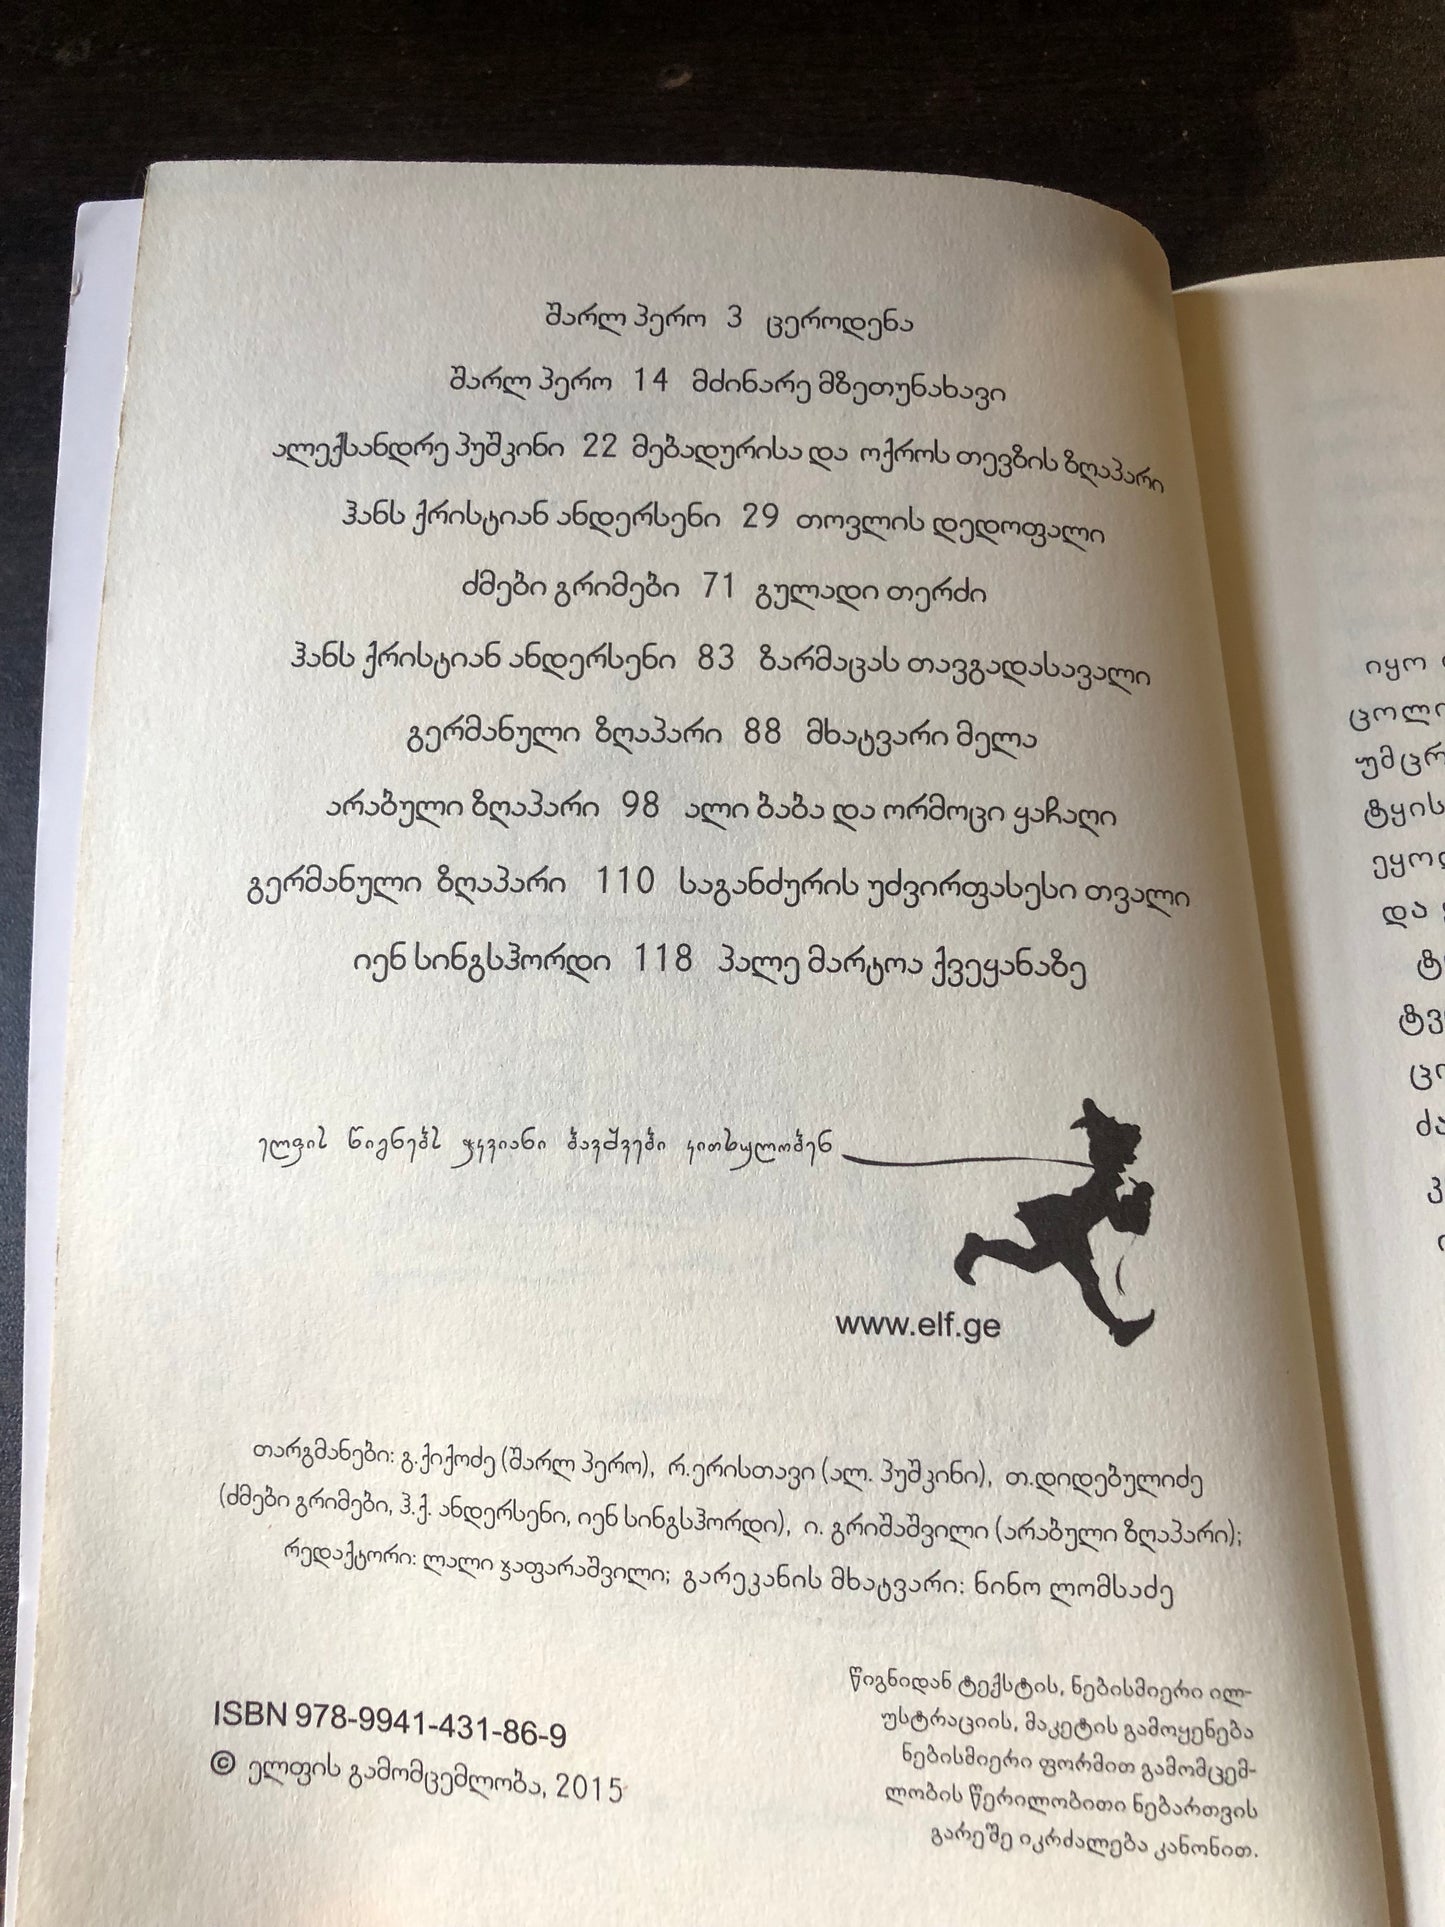 შარლ პერო 3 ცეროდენა
შარლ პერო 14 მძინარე მზეთუნახავი
ალექსანდრე პუშკინი 22 მებადურისა და ოქროს თევზის ზღაპარი
ჰანს ქრისტიან ანდერსენი 29 თოვლის დედოფალი
ძმები გრიმები 71 გულადი თერძი
ჰანს ქრისტიან ანდერსენი 83 ზარმაცას თავგადასავალი
გერმანული ზღაპარი 88 მხატვარი მელა
არაბული ზღაპარი 98 ალი ბაბა და ორმოცი ყაჩაღი
გერმანული ზღაპარი 110 საგანძურის უძვირფასესი თვალი
იენ სინგსჰორდი 118 პალე მარტოა ქვეყანაზე
ელფის წიგნებს ჭკვიანი ბავშვები კითხულობენ
www.elf.ge
თარგმანები: გ.ქიქოძე (შარლ პერო), რ.ერისთავი (ალ. პუშკინი), თ.დიდებულიძე
(ძმები გრიმები, ჰ.ქ. ანდერსენი, იენ სინგსჰორდი), ი. გრიშაშვილი (არაბული ზღაპარი);
რედაქტორი: ლალი ჯაფარაშვილი; გარეკანის მხატვარი: ნინო ლომსაძე
ISBN 978-9941-431-86-9
© ელფის გამომცემლობა, 2015
წიგნიდან ტექსტის, ნებისმიერი ილ-
უსტრაციის, მაკეტის გამოყენება
ნებისმიერი ფორმით გამომცემ-
ლობის წერილობითი ნებართვის
გარეშე იკრძალება კანონით.
იყო
ცოლი
უმცრ
ტყის
ეყო
და